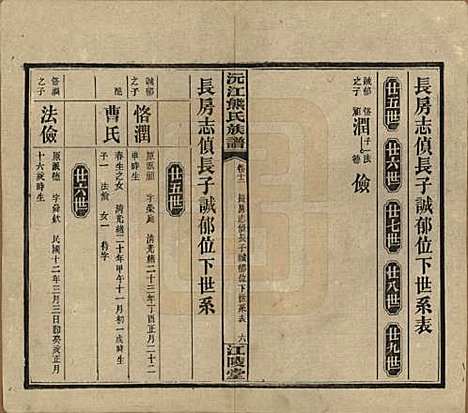 長房志偵長子誠郁位下世系表
廿五世
廿六世
廿七世
廿八世
廿九世
誠郁
之子
恪潤
子一法儉
沅江熊氏族譜
卷十二
長房志偵長子誠郁位下世系表
六
江陵堂
長房志偵長子誠郁位下世系
廿五世
誠郁
之子
恪潤
清光緒二十三年丁酉正月二十二
時生
配
曹氏
春生之女 清光緒二十年甲午十一月初一戌時生
子一 法儉 女一 待字
廿六世
恪潤
之子
法儉
原派德 字舜欽 民國十二年三月三日即癸亥正月
十六辰時生